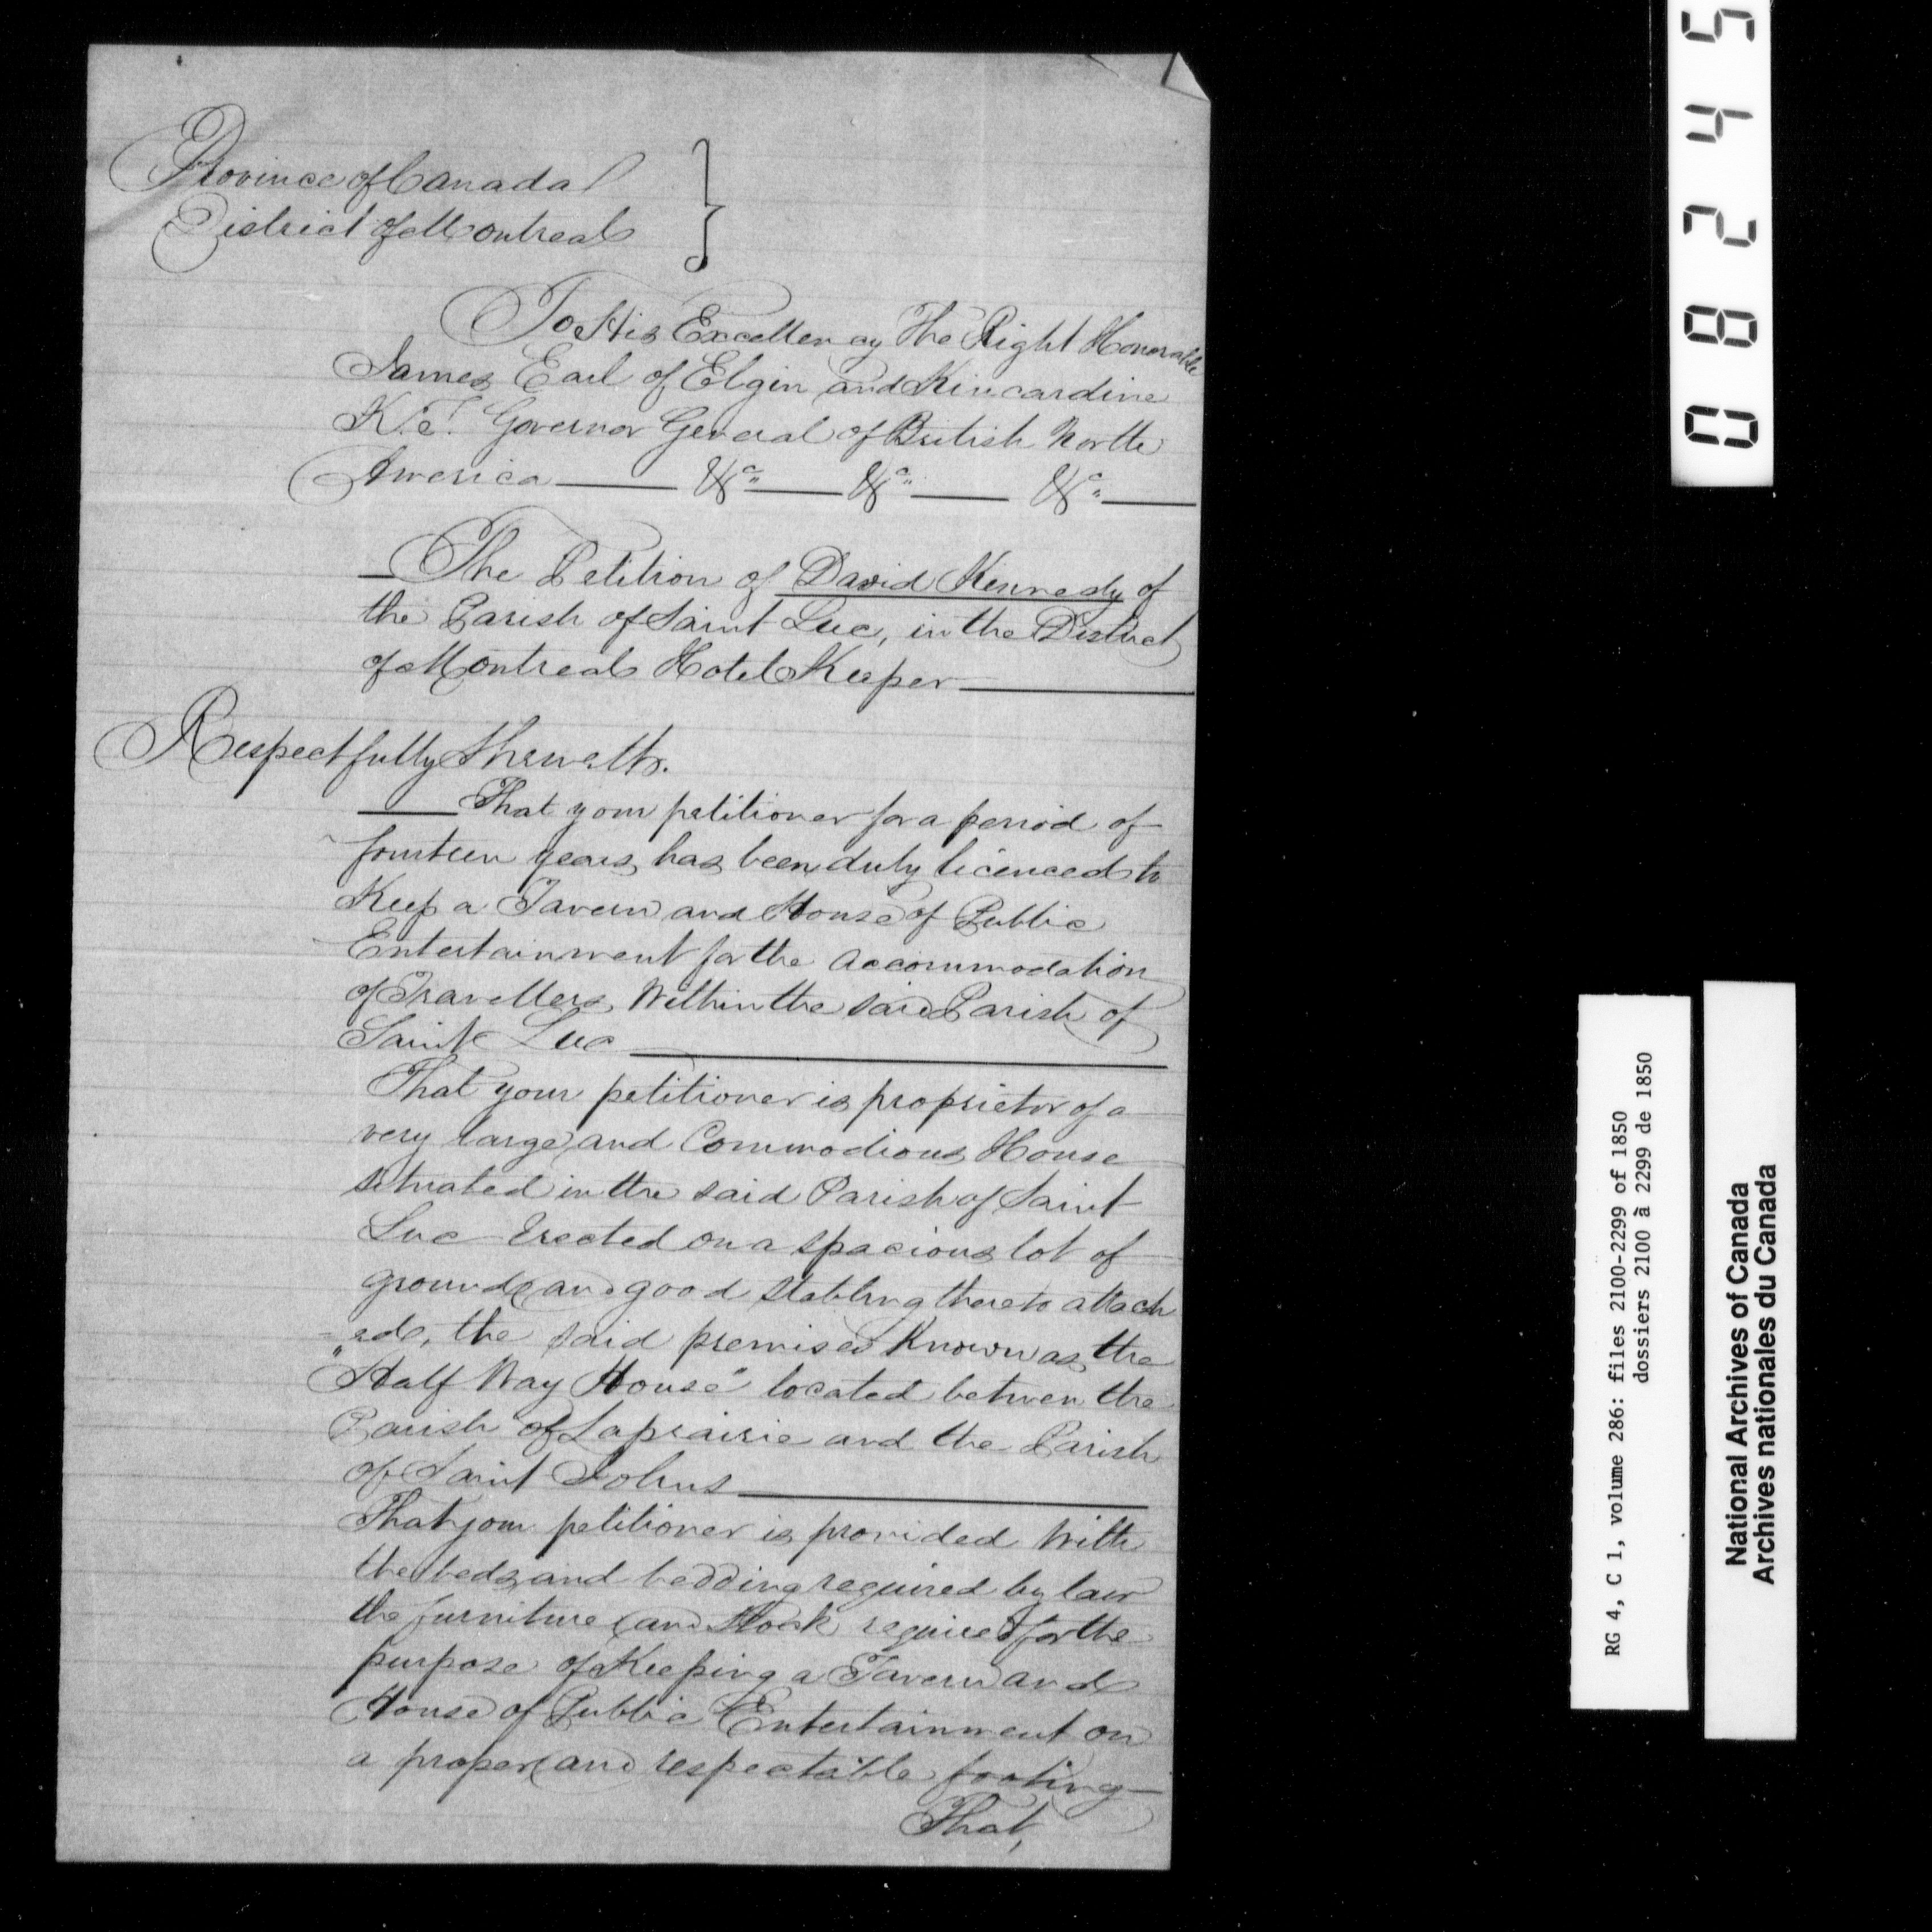 Province of Canada }
District of Montreal
To His Excellency The Right Honorable
James Earl of Elgin and Kincardine
K.T. Governor General of British North
America — &ca — &ca — &ca —
The Petition of David Kennedy of
the Parish of Saint Luc, in the District
of Montreal Hotel Keeper —
Respectfully Sheweth.
— That your petitioner for a period of
fourteen years, has been duly licenced to
Keep a Tavern and House of Public
Entertainment for the accommodation
of Travellers, Within the said Parish of
Saint Luc —
That your petitioner is proprietor of a
very large and Commodious House
situated in the said Parish of Saint
Luc Erected on a spacious lot of
ground and good stabling thereto attach
=ed, the said premises Known as the
"Half Way House" located between the
Parish of Laprairie and the Parish
of Saint Johns —
That your petitioner is provided With
the beds and bedding required by law
the furniture and Stock required for the
purpose of Keeping a Tavern and
House of Public Entertainment on
a proper and respectable footing —
That,
08245
RG 4, C 1, volume 286: files 2100-2299 of 1850
dossiers 2100 à 2299 de 1850
National Archives of Canada
Archives nationales du Canada